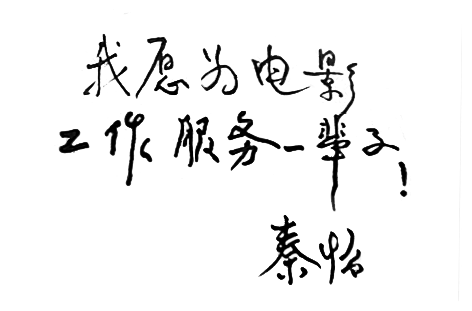 我愿为电影
工作服务一辈子!
秦怡